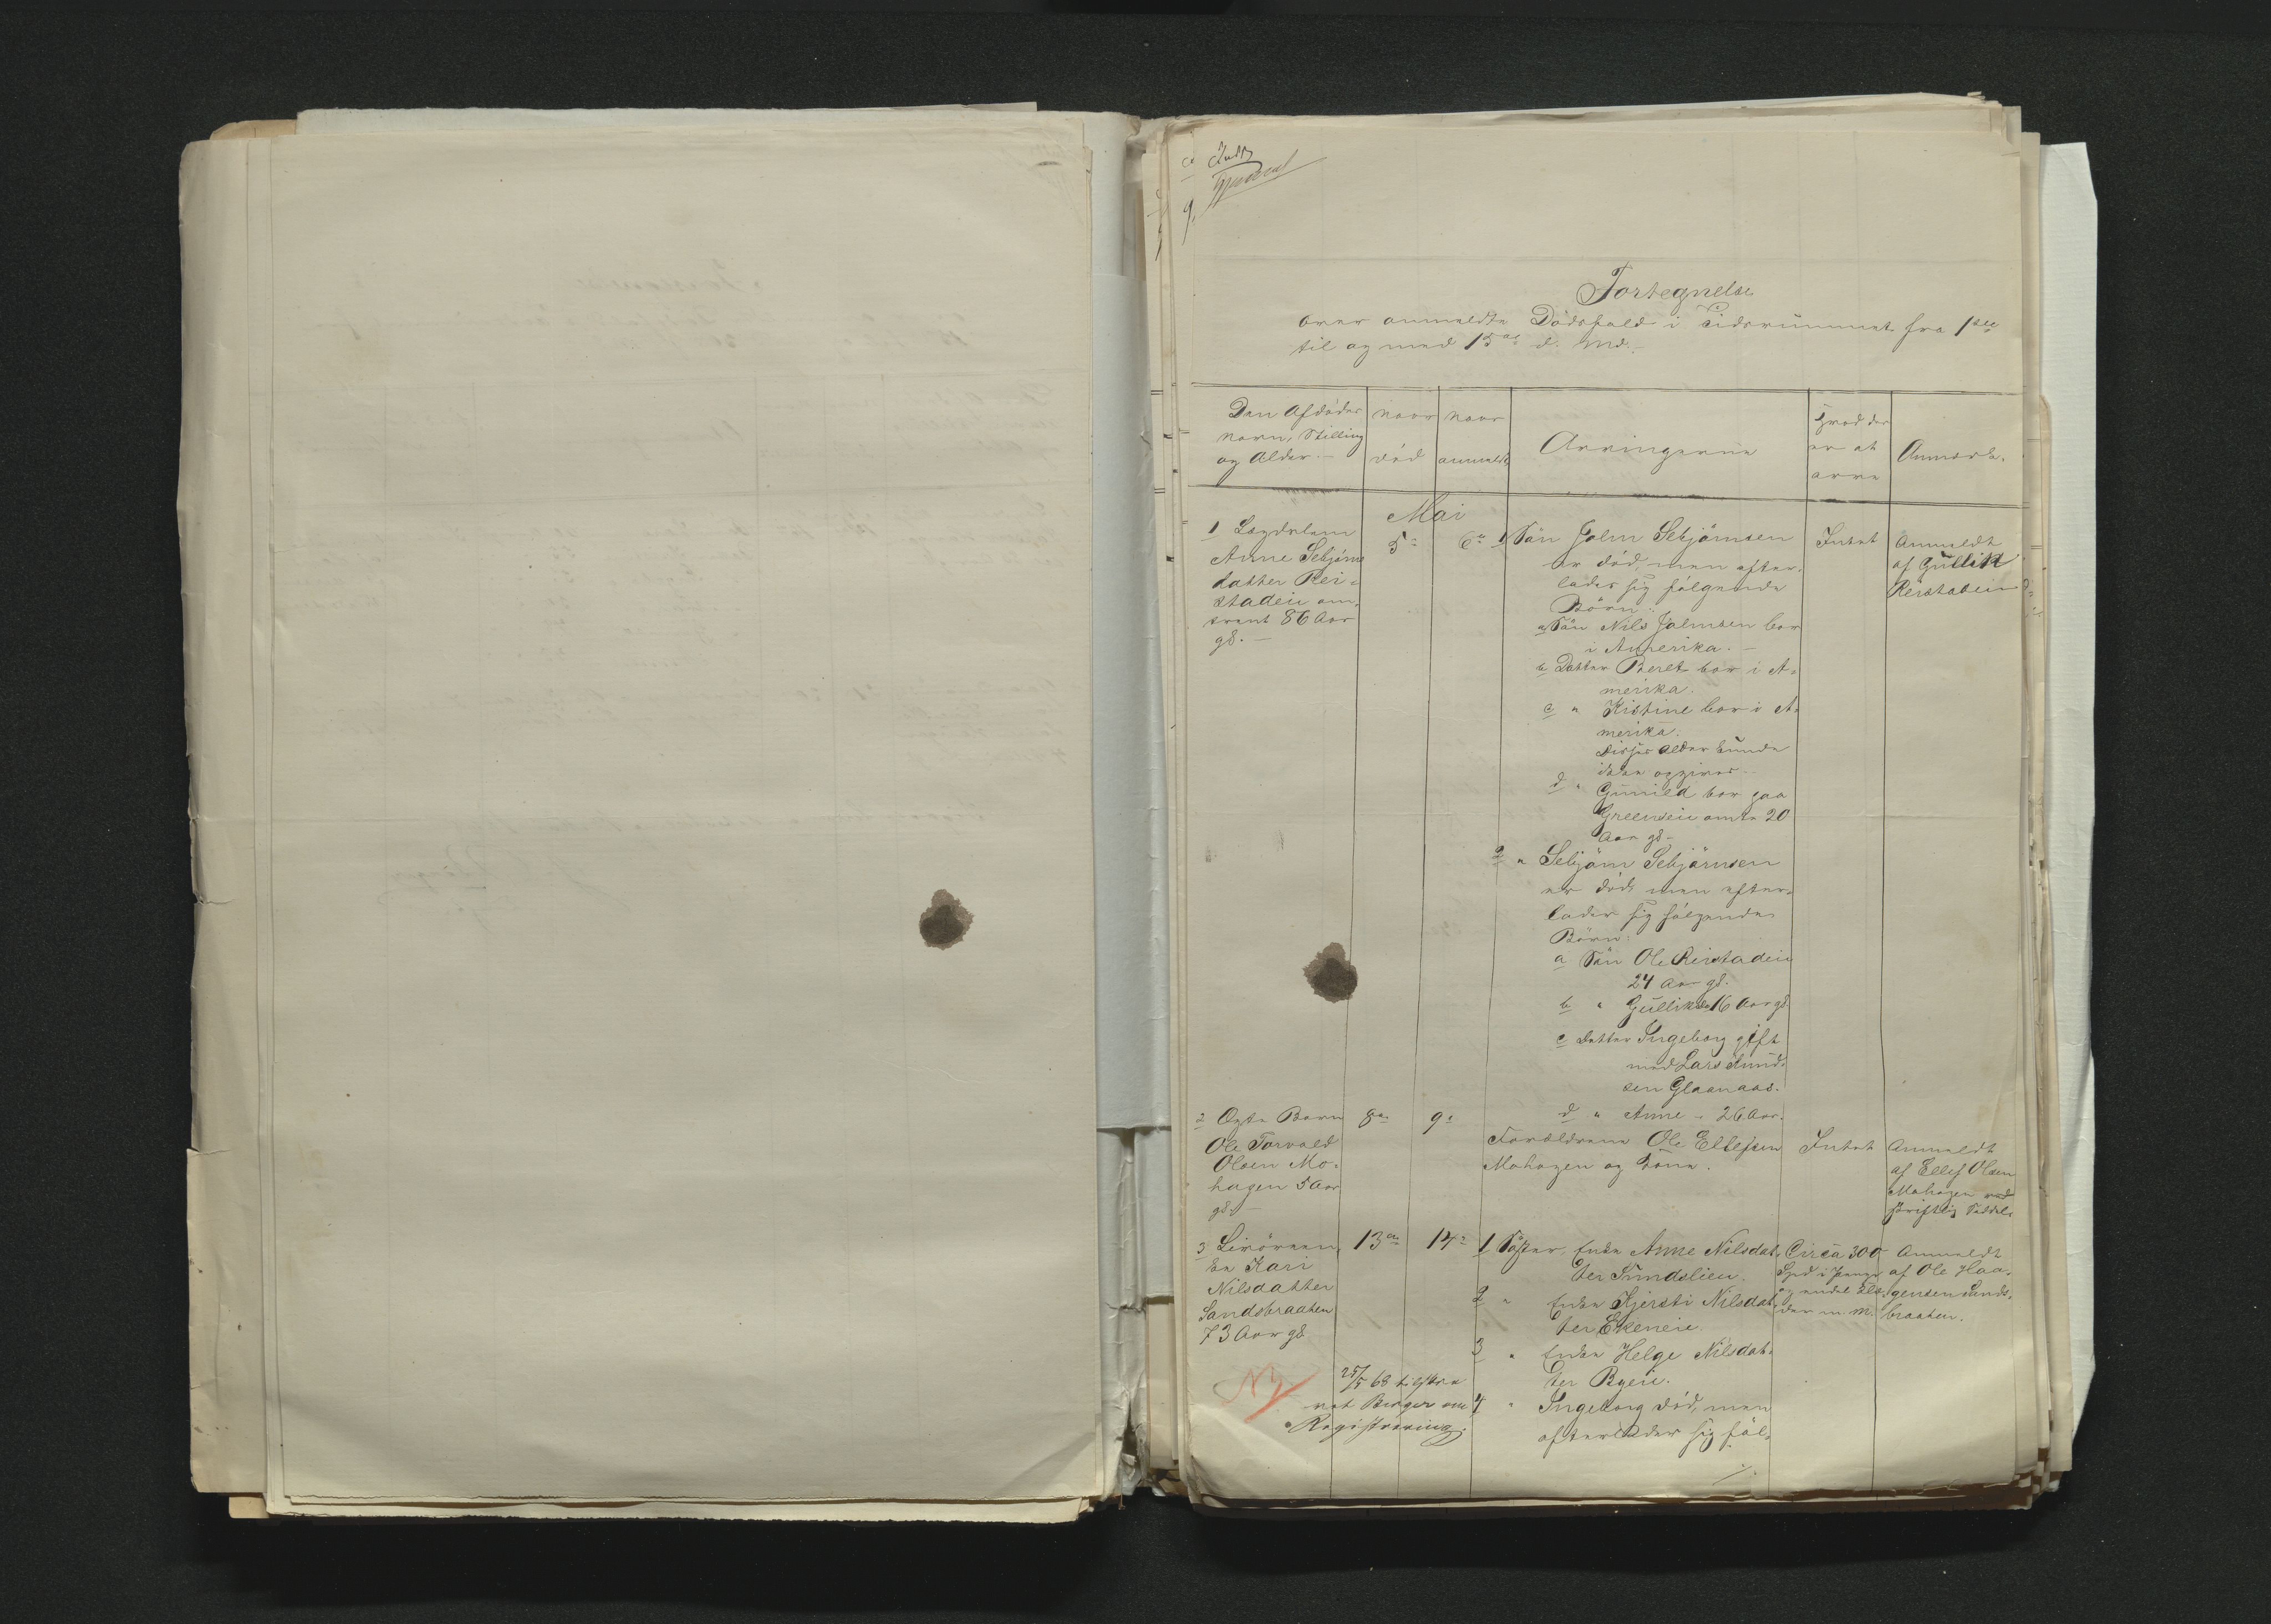 Fortegnelse
over anmeldte Dødsfald i Tidsrummet fra 1ste
til og med 15de d. Md.
Den Afdødes
Navn, Stilling
og Alder.
naar
død
naar
anmeldt
Arvingerne
Hvad der
er at
arve
Anmærk.
Mai
1 Lægdslem
Anne Sebjörns
datter Rei-
stadeie om-
trent 86 Aar
gl.
5te
6te
1 Søn Jalm Sebjörnsen
er død, men efter-
lader sig følgende
Børn:
a Søn Nils Jalmsen bor
i Amerika.
b Datter Beret bor i A-
merika.
c " Kistine bor i A-
merika.
Disses Alder kunde
ikke opgives.
d " Gunild bor paa
Greenseie omtr. 20
Aar gl.
2 " Sebjörn Sebjörnsen
er død men efter-
lader sig følgende
Børn:
a Søn Ole Reistadeie
24 Aar gl.
b " Gullik 16 Aar gl.
c Datter Ingeborg gift
med Lars Knud-
sen Glaanaas.
d " Anne - 26 Aar.
Intet
Anmeldt
af Gullik
Reistadeie
2 Ægte Barn
Ole Torvald
Olsen Mo-
hagen 5 Aar
gl.
8de
9de
Forældrene Ole Ellefsen
Mohagen og Kone.
Intet
Anmeldt
af Ellef Olsen
Mohagen ved
skriftlig Seddel.
3
Kari
Nilsdatter
Sandsbraaten
73 Aar gl.
13de
14de
1 Søster, Enke Anne Nilsdat-
ter Sundslien.
2 " Enke Kjersti Nilsdat-
ter Ekeneie.
3 " Enke Helge Nilsdat-
ter Byeie.
4 " Ingeborg død, men
efterlader sig føl-
Circa 300
Spd i Penge
og endel Klæ-
der m. M.
Anmeldt
af Ole Haa-
gensen Sands-
braaten.
25/5 68 tilskre-
vet Berger om
Registrering.